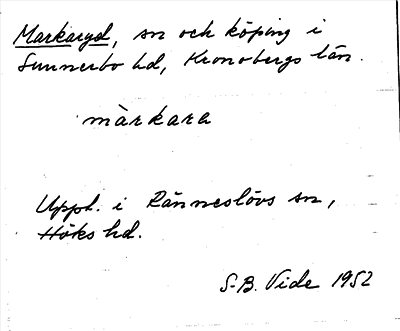 Markaryd, sn och köping i
Sunnerbo hd, Kronobergs län.
màrkara
Uppt. i Ränneslövs sn,
Höks hd.
S-B. Vide 1952